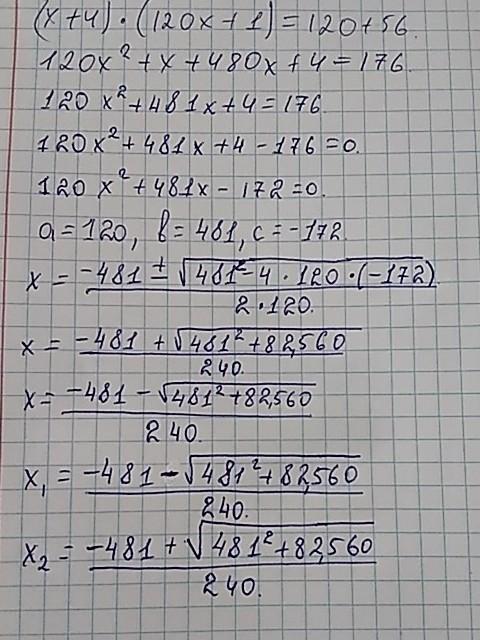 (x+4)·(120x+1)=120+56.
120x²+x+480x+4=176.
120x²+481x+4=176.
120x²+481x+4-176=0.
120x²+481x-172=0.
a=120, b=481, c=-172.
x = (-481 ± √(481²-4·120·(-172)))/(2·120).
x = (-481 + √(481²+82,560))/240.
x = (-481 - √(481²+82,560))/240.
x₁ = (-481 - √(481²+82,560))/240.
x₂ = (-481 + √(481²+82,560))/240.